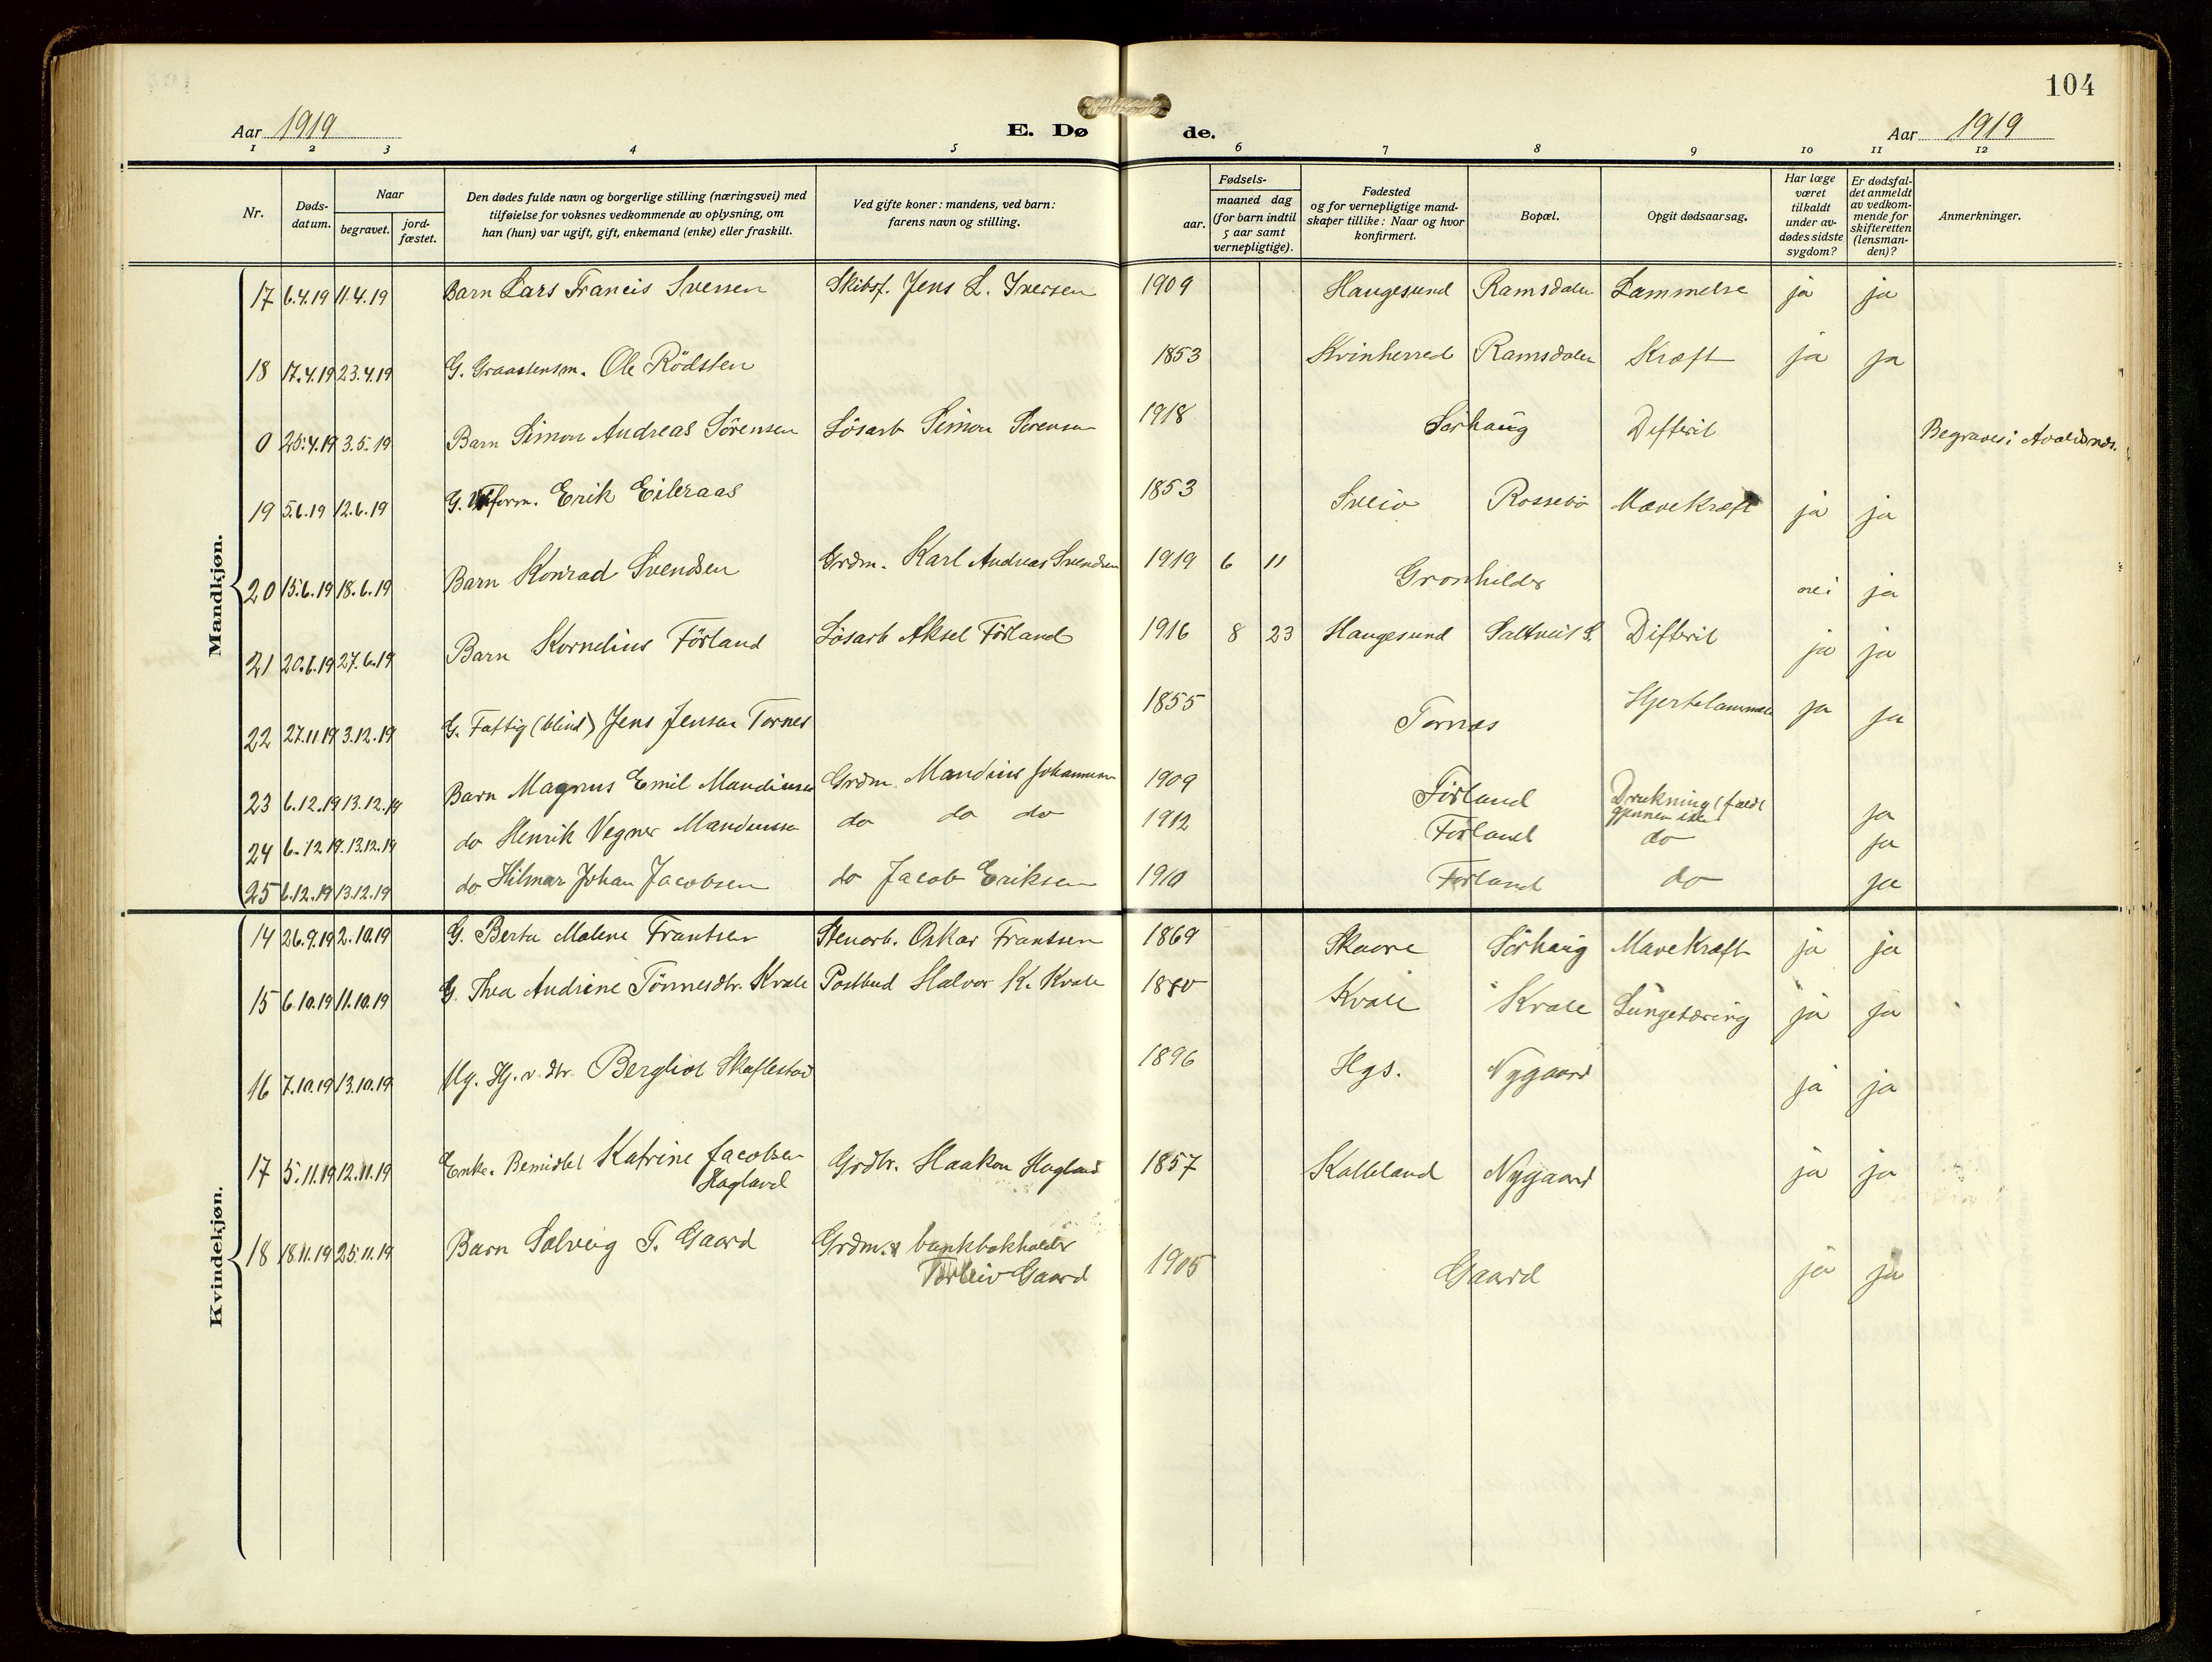 104
Aar 1919 E. Dø de. Aar 1919
1 2 3 4 5 6 7 8 9 10 11 12
Nr. Døds-datum. Naar begravet. jord-fæstet. Den dødes fulde navn og borgerlige stilling (næringsvei) med tilføielse for voksnes vedkommende av oplysning, om han (hun) var ugift, gift, enkemand (enke) eller fraskilt. Ved gifte koner: mandens, ved barn: farens navn og stilling. Fødsels- aar. maaned dag (for barn indtil 5 aar samt vernepligtige). Fødested og for vernepligtige mand-skaper tillike: Naar og hvor konfirmert. Bopæl. Opgit dødsaarsag. Har læge været tilkaldt under av-dødes sidste sygdom? Er dødsfal-det anmeldt av vedkom-mende for skifteretten (lensman-den)? Anmerkninger.
Mandkjøn.
17 6.4.19 11.4.19 Barn Lars Francis Iversen Skibsf. Jens L. Iversen 1909 Haugesund Ramsdalen Lammelse ja ja
18 17.4.19 23.4.19 G. Graastensm. Ole Rödsten 1853 Kvinherred Ramsdalen Kræft ja ja
0 25.4.19 3.5.19 Barn Simon Andreas Sörensen Lösarb Simon Sorensen 1918 Sørhaug Difterit Begraves i Avaldsnes.
19 5.6.19 12.6.19 G. Erik Eileraas 1853 Sveio Rossebö Mavekræft ja ja
20 15.6.19 18.6.19 Barn Konrad Svendsen Grdm. Karl Andreas Svendsen 1919 6 11 Gronhilder nei ja
21 20.6.19 27.6.19 Barn Kornelius Förland Lösarb Aksel Förland 1916 8 23 Haugesund Saltveit S. Difterit ja ja
22 27.11.19 3.12.19 G. Fattig (blind) Jens Jensen Tornes 1855 Tornes Hjertelammelse ja ja
23 6.12.19 13.12.19 Barn Magnus Emil Mandiussen Grdm Mandius Johannesen 1909 Förland Drukning (faldt gjennem isen) ja
24 6.12.19 13.12.19 do Henrik Vegner Mandiussen do do do 1912 Förland do ja
25 6.12.19 13.12.19 do Hilmar Johan Jacobsen do Jacob Eriksen 1910 Førland do ja
Kvindekjøn.
14 26.9.19 2.10.19 G. Berta Malene Frantsen Stenarb. Oskar Frantsen 1869 Skaare Sörhaug Mavekræft ja ja
15 6.10.19 11.10.19 G. Thea Andrine Tönnesdtr. Kvale Postbud Halvor K. Kvale 1880 Kvale Kvale Lungetæring ja ja
16 7.10.19 13.10.19 Ug. Hj.v. dtr. Bergliot Skeflestad 1896 Hgs. Nygaard ja ja
17 5.11.19 12.11.19 Enke. Bemidlet Katrine Jacobsen Grdbr. Haakon Hagland 1857 Kolleland Nygaard ja ja
Hagland
18 18.11.19 25.11.19 Barn Solveig T. Gaard Grdm. & bankbokholder 1905 Gaard ja ja
Torleiv Gaard